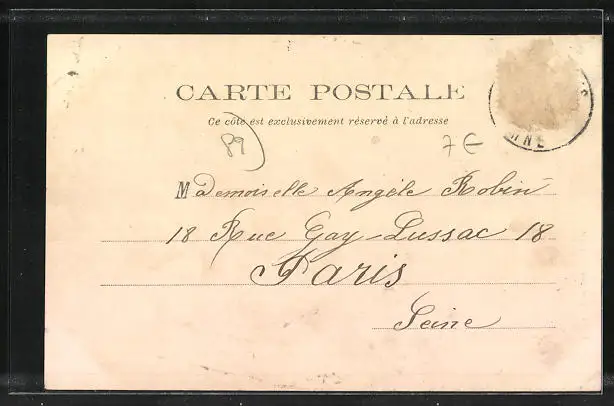 CARTE POSTALE
Ce côté est exclusivement réservé à l'adresse
89
7€
Mademoiselle Angèle Robin
18 Rue Gay-Lussac 18
Paris
Seine